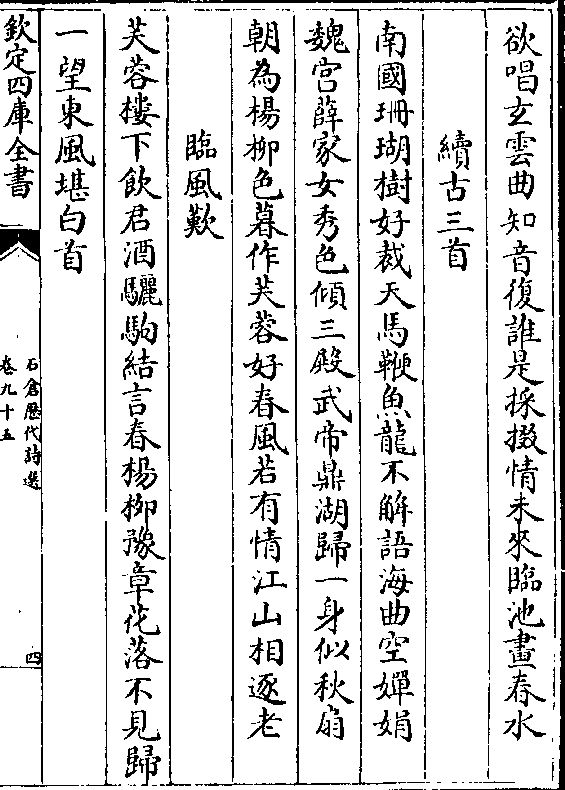 欲唱玄雲曲知音復誰是採掇情未來臨池畫春水
續古三首
南國珊瑚樹好裁天馬鞭魚龍不解語海曲空嬋娟
魏宫薛家女秀色傾三殿武帝鼎湖歸一身似秋扇
朝為楊柳色暮作芙蓉好春風若有情江山相逐老
臨風歎
芙蓉樓下飲君酒驪駒結言春楊柳豫章花落不見歸
一望東風堪白首
欽定四庫全書
石倉歷代詩選
卷九十五
四